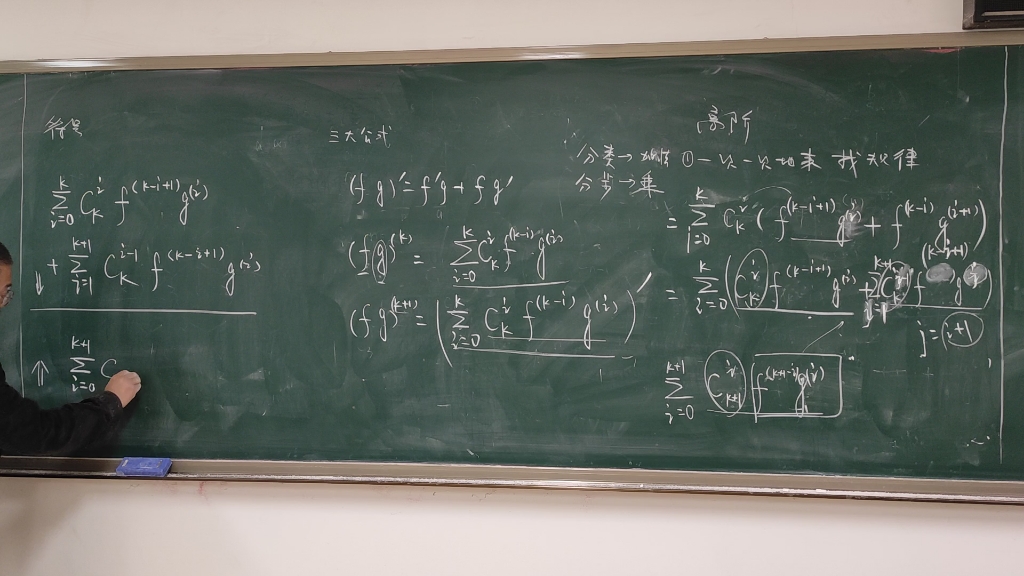 \sum_{i=0}^{k} C_k^i f^{(k-i+1)} g^{(i)}
↓ + \sum_{i=1}^{k+1} C_k^{i-1} f^{(k-i+1)} g^{(i)}
↑ \sum_{i=0}^{k+1} C
三大公式
(fg)' = f'g + fg'
(fg)^{(k)} = \sum_{i=0}^{k} C_k^i f^{(k-i)} g^{(i)}
(fg)^{(k+1)} = (\sum_{i=0}^{k} C_k^i f^{(k-i)} g^{(i)})'
高阶
分类→ ①一次一次地来 找规律
分步→乘
= \sum_{i=0}^{k} C_k^i (f^{(k-i+1)} g^{(i)} + f^{(k-i)} g^{(i+1)})
= \sum_{i=0}^{k} (C_k^i f^{(k-i+1)} g^{(i)} +
j = i+1
\sum_{i=0}^{k+1} C_{k+1}^i f^{(k+1-i)} g^{(i)}